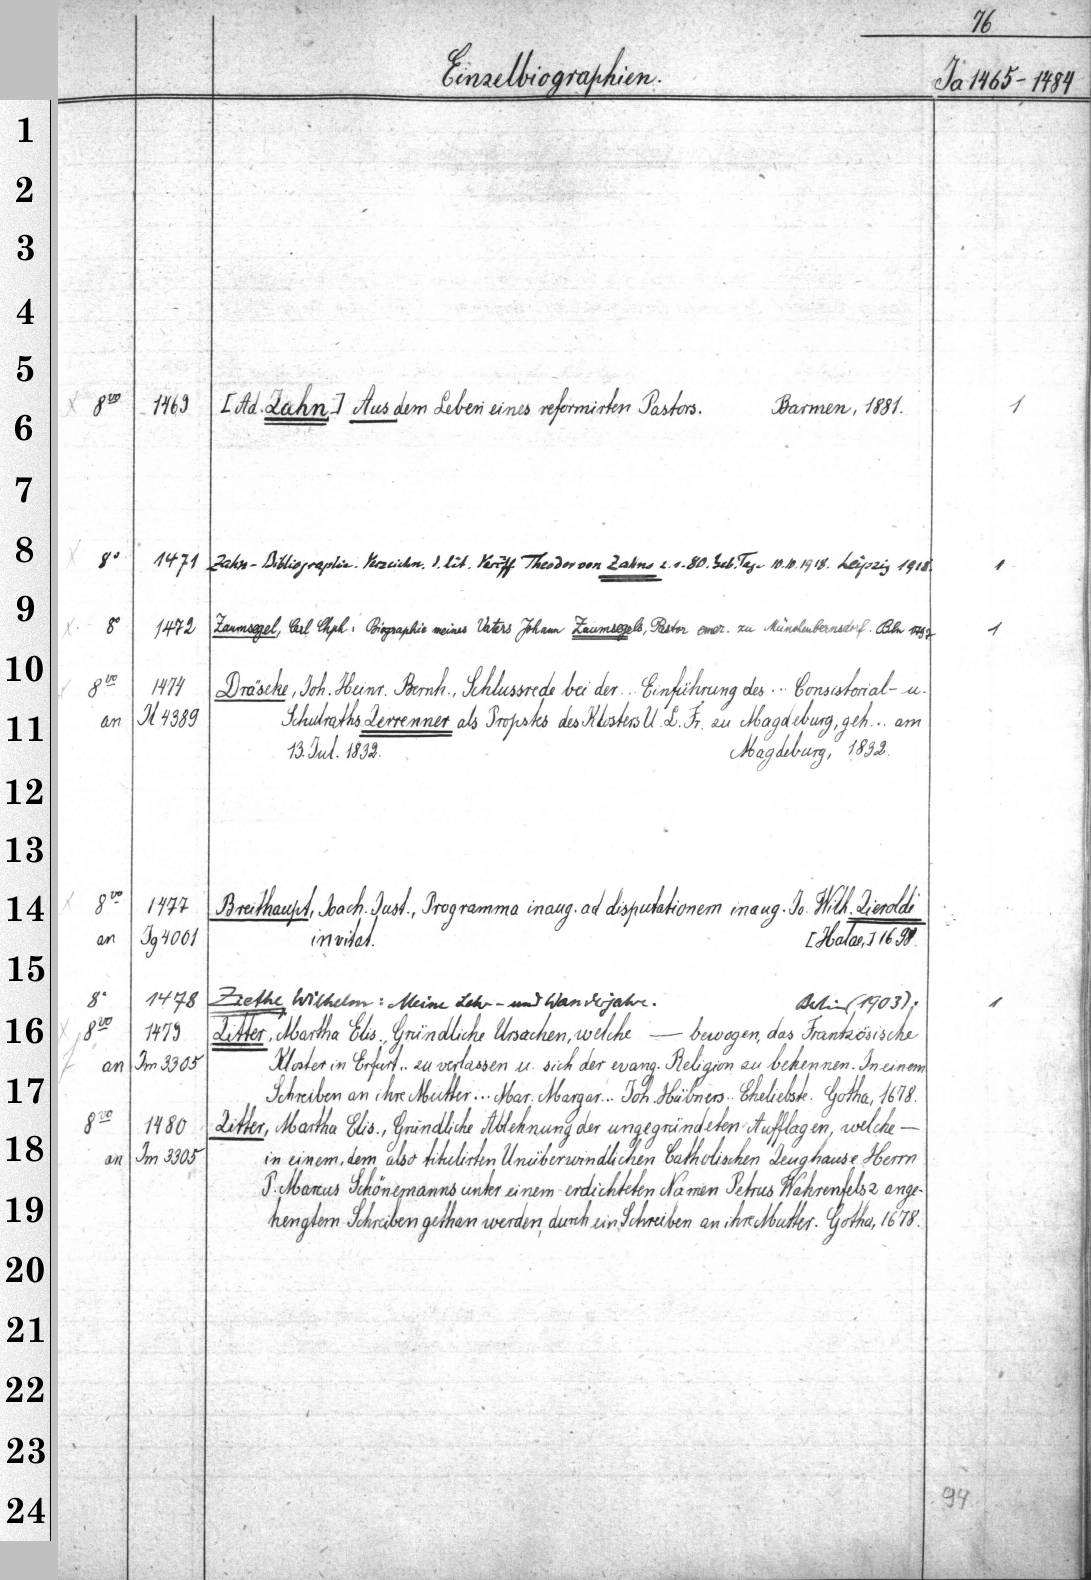 76
Einzelbiographien.
Ja 1465 - 1484
1
2
3
4
5
8vo 1469 [Ad. Zahn.] Aus dem Leben eines reformirten Pastors. Barmen, 1881. 1
6
7
8
8° 1471 Zahn-Bibliographie. Verzeichn. d. lit. Veröff. Theodor von Zahns z. s. 80. Geb. Tag 10.10.1918. Leipzig 1918. 1
9
8° 1472 Zaumsegel, Carl Chph: Biographie meines Vaters Johann Zaumsegels, Pastor emer. zu Münchenbernsdorf. 1
10
8vo 1474 Dräseke, Joh. Heinr. Bernh., Schlussrede bei der .. Einführung des ... Consistorial- u.
11
an Il 4389 Schulraths Zerrenner als Propstes des Klosters U. L. Fr. zu Magdeburg, geh... am
13. Jul. 1832. Magdeburg, 1832.
12
13
14
8vo 1477 Breithaupt, Joach. Just., Programma inaug. ad disputationem inaug. Jo. Wilh. Zieroldi
an Jg 4001 invitat. [Halae,] 1698.
15
8° 1478 Ziethe, Wilhelm: Meine Lehr- und Wanderjahre. Berlin (1903). 1
16
8vo 1479 Zitter, Martha Elis., Gründliche Ursachen, welche — bewogen, das Frantzösische
an Jm 3305 Kloster in Erfurt .. zu verlassen u. sich der evang. Religion zu bekennen. In einem
17
Schreiben an ihre Mutter ... Mar. Margar... Joh. Hübners .. Eheliebste. Gotha, 1678.
8vo 1480 Zitter, Martha Elis., Gründliche Ablehnung der ungegründeten Aufflagen, welche —
18
an Jm 3305 in einem, dem also titulirten Unüberwindlichen Catholischen Zeughause Herrn
P. Marcus Schönemanns unter einem erdichteten Namen Petrus Wahrenfels 2 ange-
19
hengtem Schreiben gethan werden, durch ein Schreiben an ihre Mutter. Gotha, 1678.
20
21
22
23
24
94